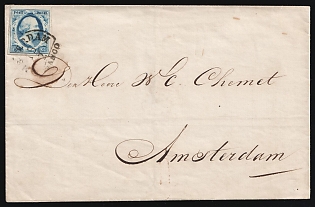 Den Heer W. C. Chemet
Amsterdam